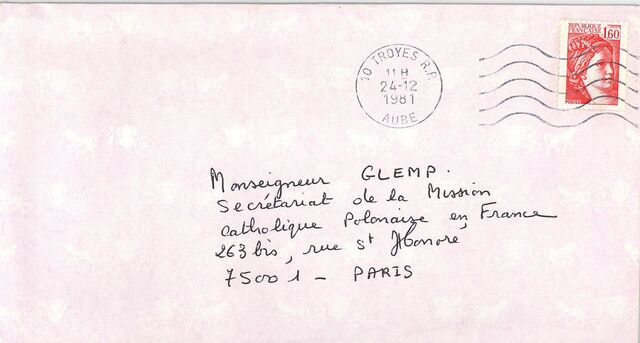 REPUBLIQUE
FRANÇAISE
1,60
10 TROYES R.P.
11 H
24-12
1981
AUBE
Monseigneur GLEMP.
Secrétariat de la Mission
catholique Polonaise en France
263 bis, rue St Honoré,
75001 - PARIS